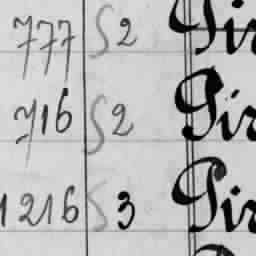 777 S2 Gir
716 S2 Gir
1216 S3 Gir